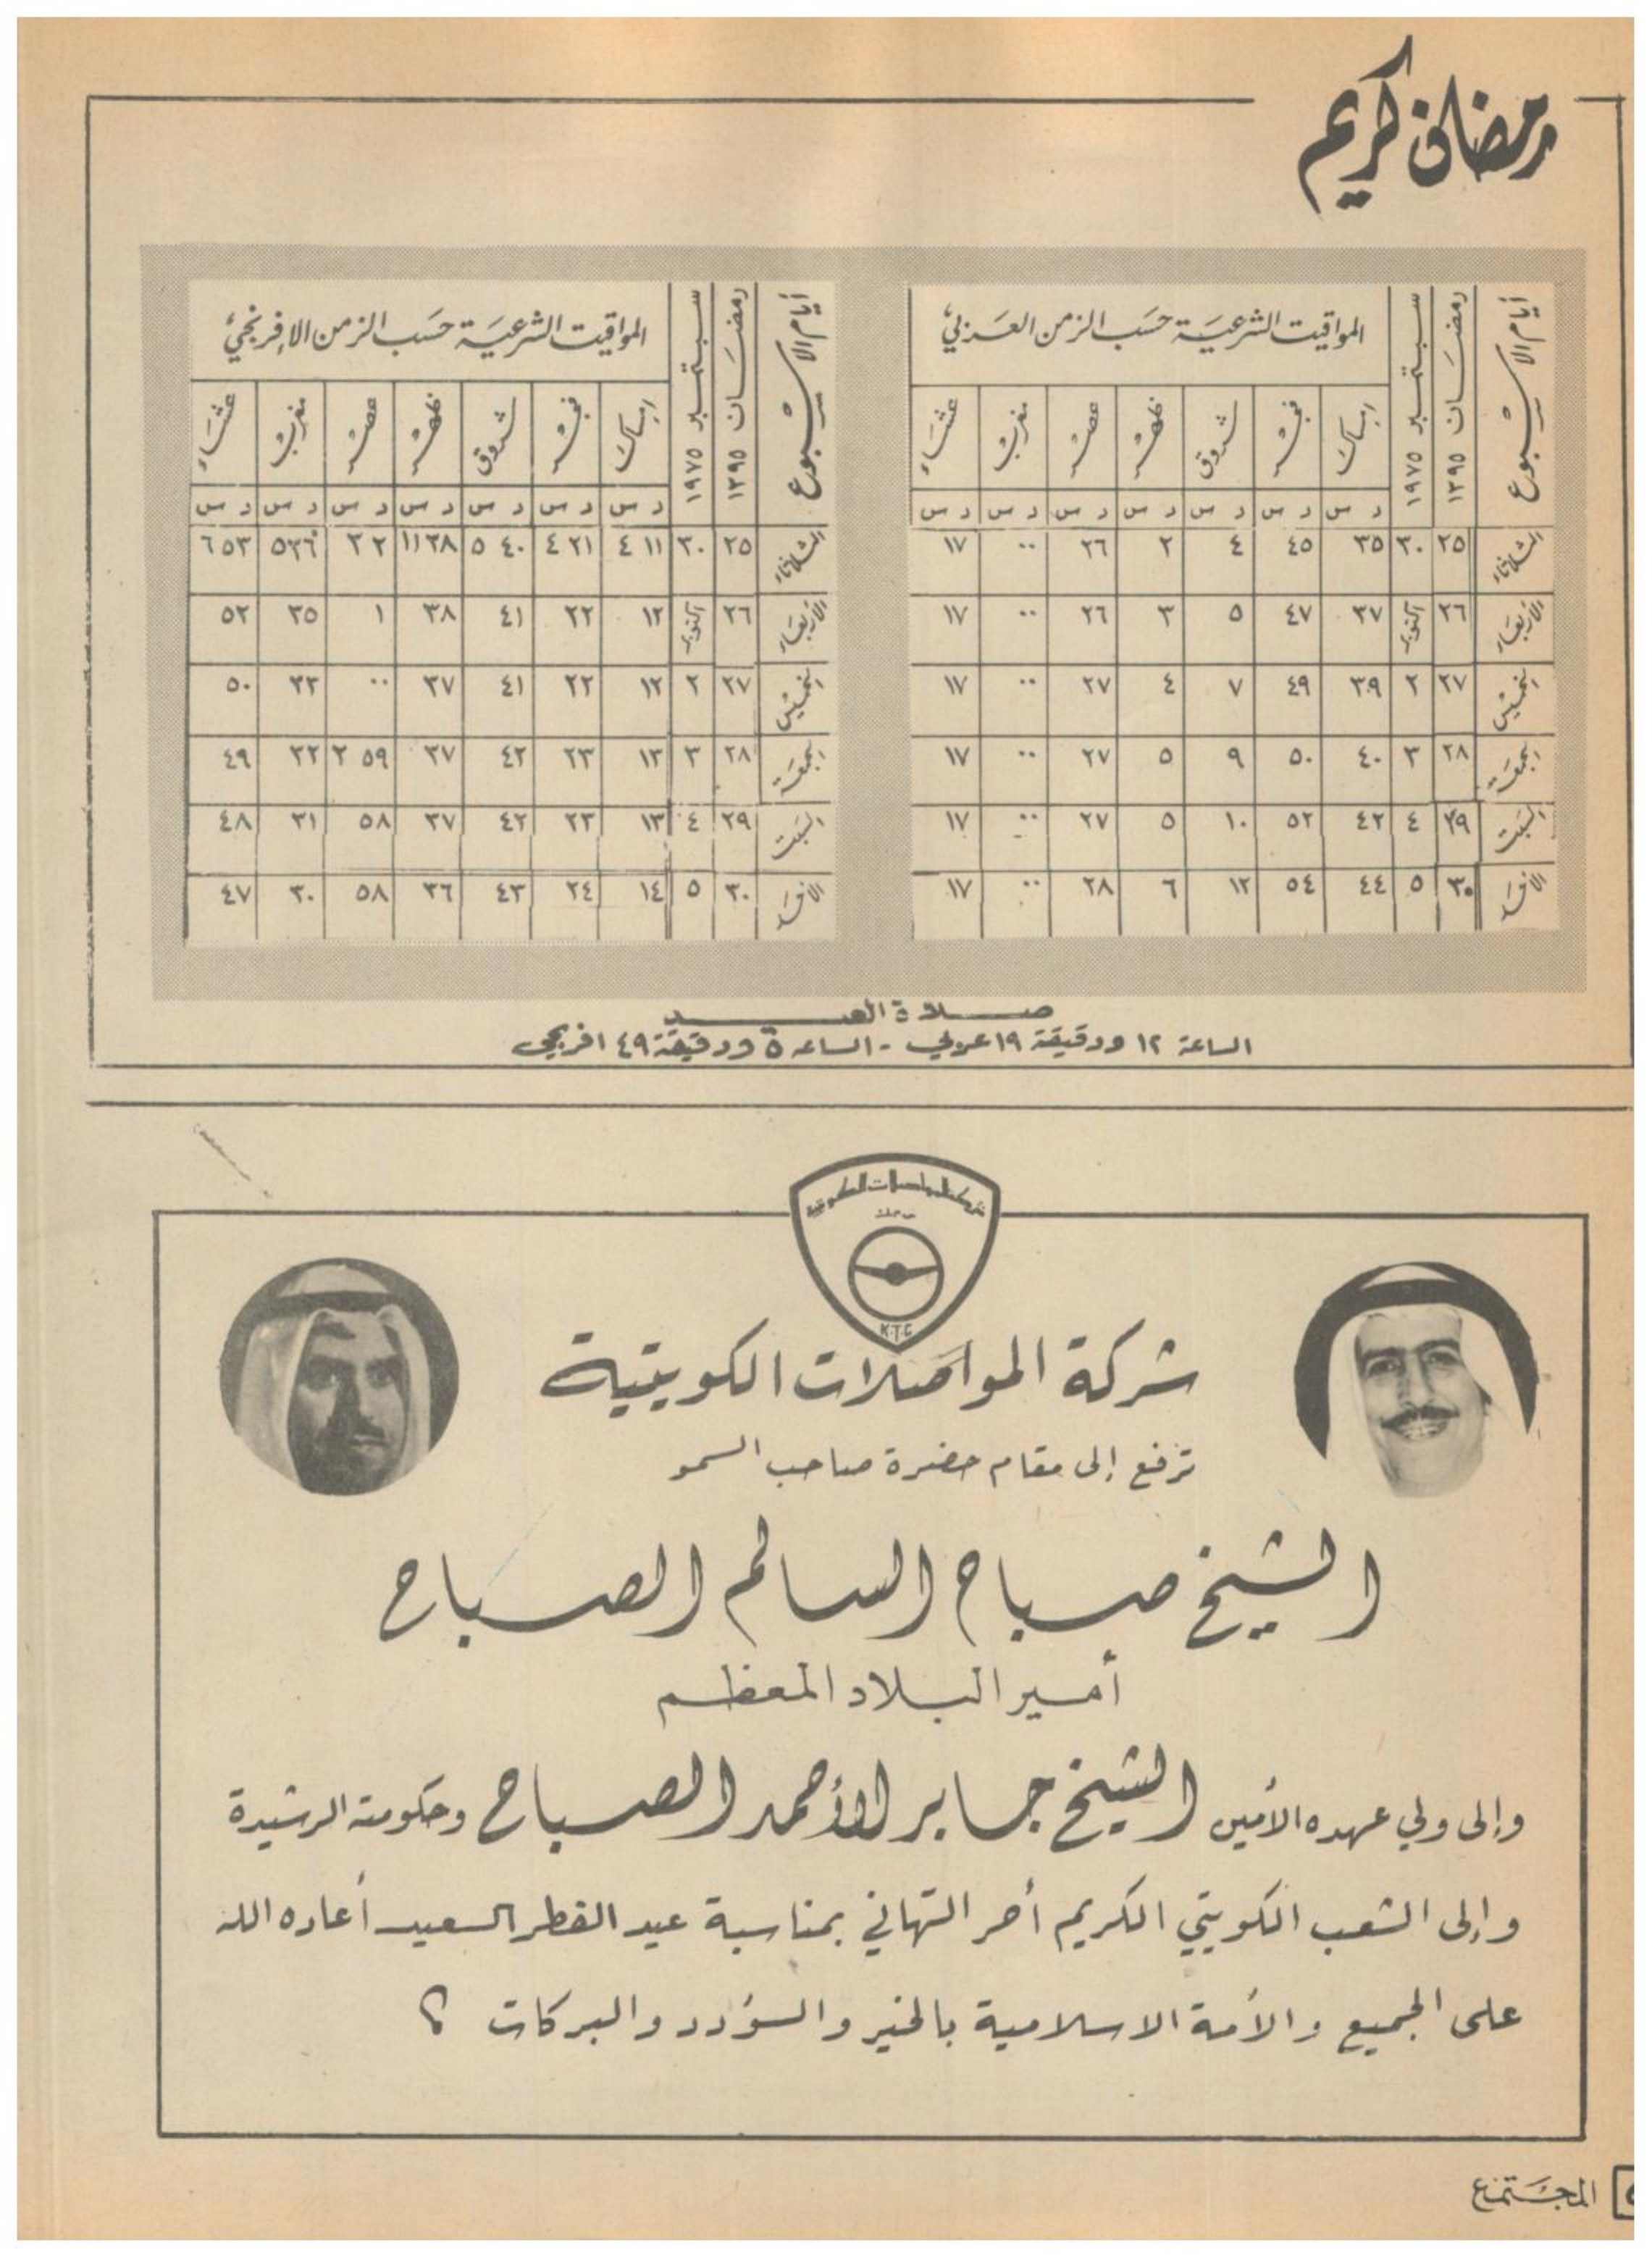 رمضان كريم
أيام الاسبوع
رمضان ١٣٩٥
سبتمبر ١٩٧٥
المواقيت الشرعية حسب الزمن العربي
امساك فجر شروق ظهر عصر مغرب عشاء
د س د س د س د س د س د س د س
الثلاثاء ٢٥ ٣٠ ٣٥ ٤٥ ٤ ٢ ٢٦ ٠٠ ١٧
الأربعاء ٢٦ اكتوبر ٣٧ ٤٧ ٥ ٣ ٢٦ ٠٠ ١٧
الخميس ٢٧ ٢ ٣٩ ٤٩ ٧ ٤ ٢٧ ٠٠ ١٧
الجمعة ٢٨ ٣ ٤٠ ٥٠ ٩ ٥ ٢٧ ٠٠ ١٧
السبت ٢٩ ٤ ٤٢ ٥٢ ١٠ ٥ ٢٧ ٠٠ ١٧
الأحد ٣٠ ٥ ٤٤ ٥٤ ١٢ ٦ ٢٨ ٠٠ ١٧
أيام الاسبوع
رمضان ١٣٩٥
سبتمبر ١٩٧٥
المواقيت الشرعية حسب الزمن الافرنجي
امساك فجر شروق ظهر عصر مغرب عشاء
د س د س د س د س د س د س د س
الثلاثاء ٢٥ ٣٠ ١١ ٤ ٢١ ٤ ٤٠ ٥ ٣٨ ١١ ٢ ٣ ٣٦ ٥ ٥٣ ٦
الأربعاء ٢٦ اكتوبر ١٢ ٢٢ ٤١ ٣٨ ١ ٣٥ ٥٢
الخميس ٢٧ ٢ ١٢ ٢٢ ٤١ ٣٧ ٠٠ ٣٣ ٥٠
الجمعة ٢٨ ٣ ١٣ ٢٣ ٤٢ ٣٧ ٥٩ ٢ ٣٢ ٤٩
السبت ٢٩ ٤ ١٣ ٢٣ ٤٢ ٣٧ ٥٨ ٣١ ٤٨
الأحد ٣٠ ٥ ١٤ ٢٤ ٤٣ ٣٦ ٥٨ ٣٠ ٤٧
صلاة العيد
الساعة ١٢ ودقيقة ١٩ عربي - الساعة ٥ ودقيقة ٤٩ افرنجي
شركة المواصلات الكويتية
ش.م.ك
K.T.C
شركة المواصلات الكويتية
ترفع إلى مقام حضرة صاحب السمو
الشيخ صباح السالم الصباح
أمير البلاد المعظم
وإلى ولي عهده الأمين الشيخ جابر الأحمد الصباح وحكومته الرشيدة
وإلى الشعب الكويتي الكريم أحر التهاني بمناسبة عيد الفطر السعيد أعاده الله
على الجميع والأمة الاسلامية بالخير والسؤدد والبركات
المجتمع